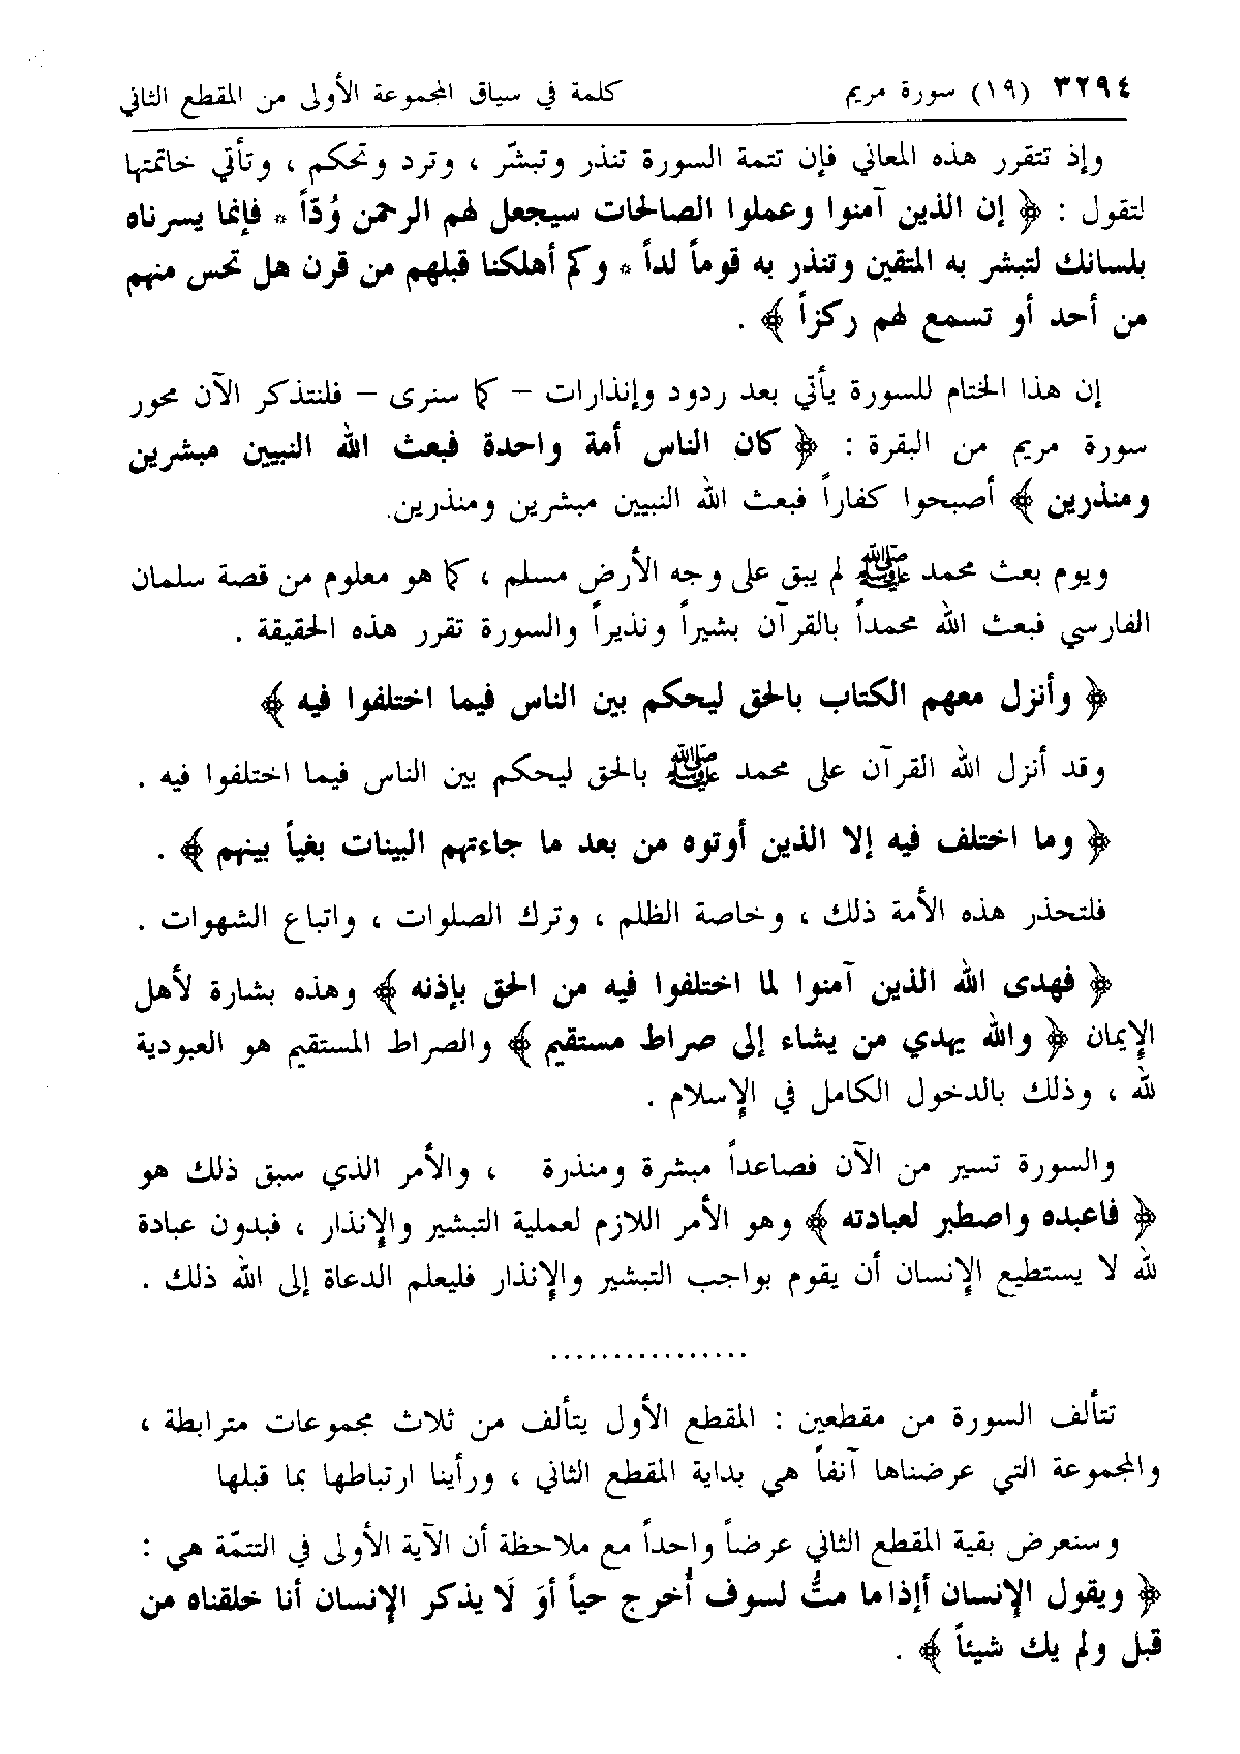 ٣٢٩٤ (١٩) سورة مريم كلمة في سياق المجموعة الأولى من المقطع الثاني
وإذ تتقرر هذه المعاني فإن تتمة السورة تنذر وتبشّر ، وترد وتحكم ، وتأتي خاتمتها
لتقول : ﴿ إن الذين آمنوا وعملوا الصالحات سيجعل لهم الرحمن وُدّاً * فإنما يسرناه
بلسانك لتبشر به المتقين وتنذر به قوماً لداً * وكم أهلكنا قبلهم من قرن هل تحس منهم
من أحد أو تسمع لهم ركزاً ﴾ .
إن هذا الختام للسورة يأتي بعد ردود وإنذارات – كما سنرى – فلنتذكر الآن محور
سورة مريم من البقرة : ﴿ كان الناس أمة واحدة فبعث الله النبيين مبشرين
ومنذرين ﴾ أصبحوا كفاراً فبعث الله النبيين مبشرين ومنذرين.
ويوم بعث محمد ﷺ لم يبق على وجه الأرض مسلم ، كما هو معلوم من قصة سلمان
الفارسي فبعث الله محمداً بالقرآن بشيراً ونذيراً والسورة تقرر هذه الحقيقة .
﴿ وأنزل معهم الكتاب بالحق ليحكم بين الناس فيما اختلفوا فيه ﴾
وقد أنزل الله القرآن على محمد ﷺ بالحق ليحكم بين الناس فيما اختلفوا فيه .
﴿ وما اختلف فيه إلا الذين أوتوه من بعد ما جاءتهم البينات بغياً بينهم ﴾ .
فلتحذر هذه الأمة ذلك ، وخاصة الظلم ، وترك الصلوات ، واتباع الشهوات .
﴿ فهدى الله الذين آمنوا لما اختلفوا فيه من الحق بإذنه ﴾ وهذه بشارة لأهل
الإيمان ﴿ والله يهدي من يشاء إلى صراط مستقيم ﴾ والصراط المستقيم هو العبودية
لله ، وذلك بالدخول الكامل في الإسلام .
والسورة تسير من الآن فصاعداً مبشرة ومنذرة ، والأمر الذي سبق ذلك هو
﴿ فاعبده واصطبر لعبادته ﴾ وهو الأمر اللازم لعملية التبشير والإنذار ، فبدون عبادة
لله لا يستطيع الإنسان أن يقوم بواجب التبشير والإنذار فليعلم الدعاة إلى الله ذلك .
................
تتألف السورة من مقطعين : المقطع الأول يتألف من ثلاث مجموعات مترابطة ،
والمجموعة التي عرضناها آنفاً هي بداية المقطع الثاني ، ورأينا ارتباطها بما قبلها
وسنعرض بقية المقطع الثاني عرضاً واحداً مع ملاحظة أن الآية الأولى في التتمّة هي :
﴿ ويقول الإنسان أإذا ما متُّ لسوف أُخرج حياً أوَ لَا يذكر الإنسان أنا خلقناه من
قبل ولم يك شيئاً ﴾ .